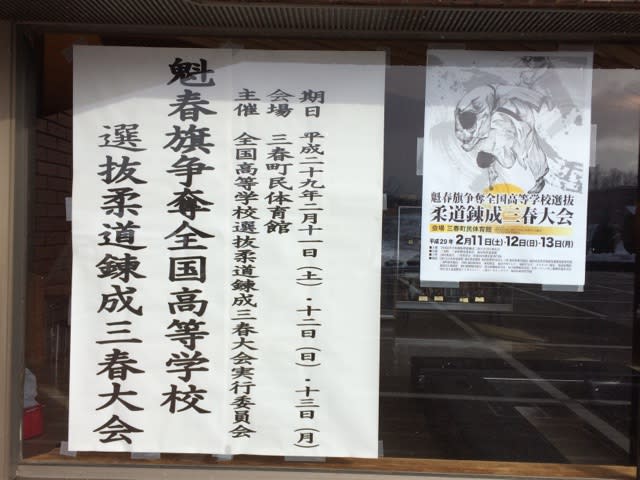 期日　平成二十九年二月十一日（土）・十二日（日）・十三日（月）
会場　三春町民体育館
主催　全国高等学校選抜柔道錬成三春大会実行委員会
魁春旗争奪全国高等学校
選抜柔道錬成三春大会
魁春旗争奪全国高等学校選抜
柔道錬成三春大会
会場 三春町民体育館
平成29年2月11日(土)・12日(日)・13日(月)